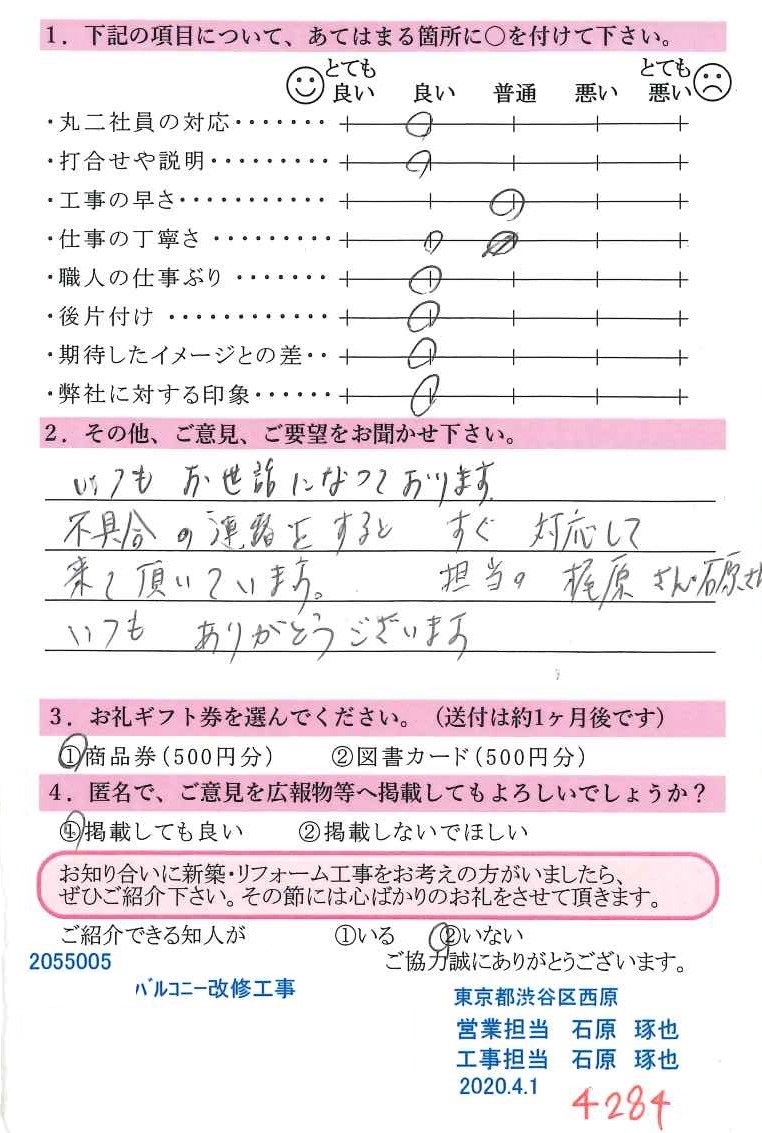 1. 下記の項目について、あてはまる箇所に○を付けて下さい。
とても良い 良い 普通 悪い とても悪い
・丸二社員の対応・・・・・・・
・打合せや説明・・・・・・・・・
・工事の早さ・・・・・・・・・・・
・仕事の丁寧さ・・・・・・・・・
・職人の仕事ぶり・・・・・・・
・後片付け・・・・・・・・・・・・
・期待したイメージとの差・・
・弊社に対する印象・・・・・・
2. その他、ご意見、ご要望をお聞かせ下さい。
いつも お世話になっております
不具合の連絡をすると すぐ 対応して
来て頂いています。 担当の 梶原さん・石原さん
いつも ありがとうございます
3. お礼ギフト券を選んでください。(送付は約1ヶ月後です)
①商品券(500円分) ②図書カード(500円分)
4. 匿名で、ご意見を広報物等へ掲載してもよろしいでしょうか?
①掲載しても良い ②掲載しないでほしい
お知り合いに新築・リフォーム工事をお考えの方がいましたら、
ぜひご紹介下さい。その節には心ばかりのお礼をさせて頂きます。
ご紹介できる知人が ①いる ②いない
2055005 ご協力誠にありがとうございます。
バルコニー改修工事 東京都渋谷区西原
営業担当 石原 琢也
工事担当 石原 琢也
2020.4.1
4284